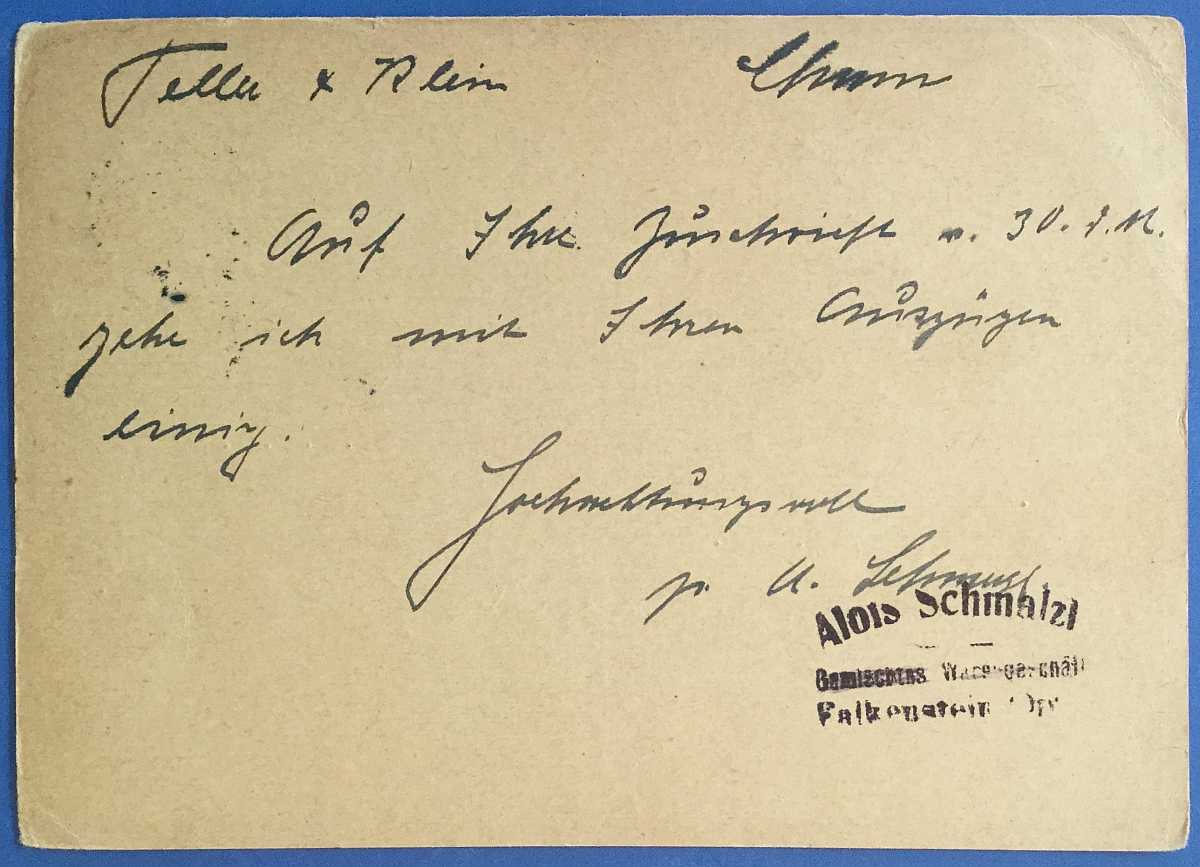 Teller & Klein Cham
Auf Ihre Zuschrieft v. 30. d. M.
gehe ich mit Ihren Auszügen
einig.
Hochachtungsvoll
p. A. Schmalzl
Alois Schmalzl
Gemischtes Warengeschäft
Falkenstein Opf